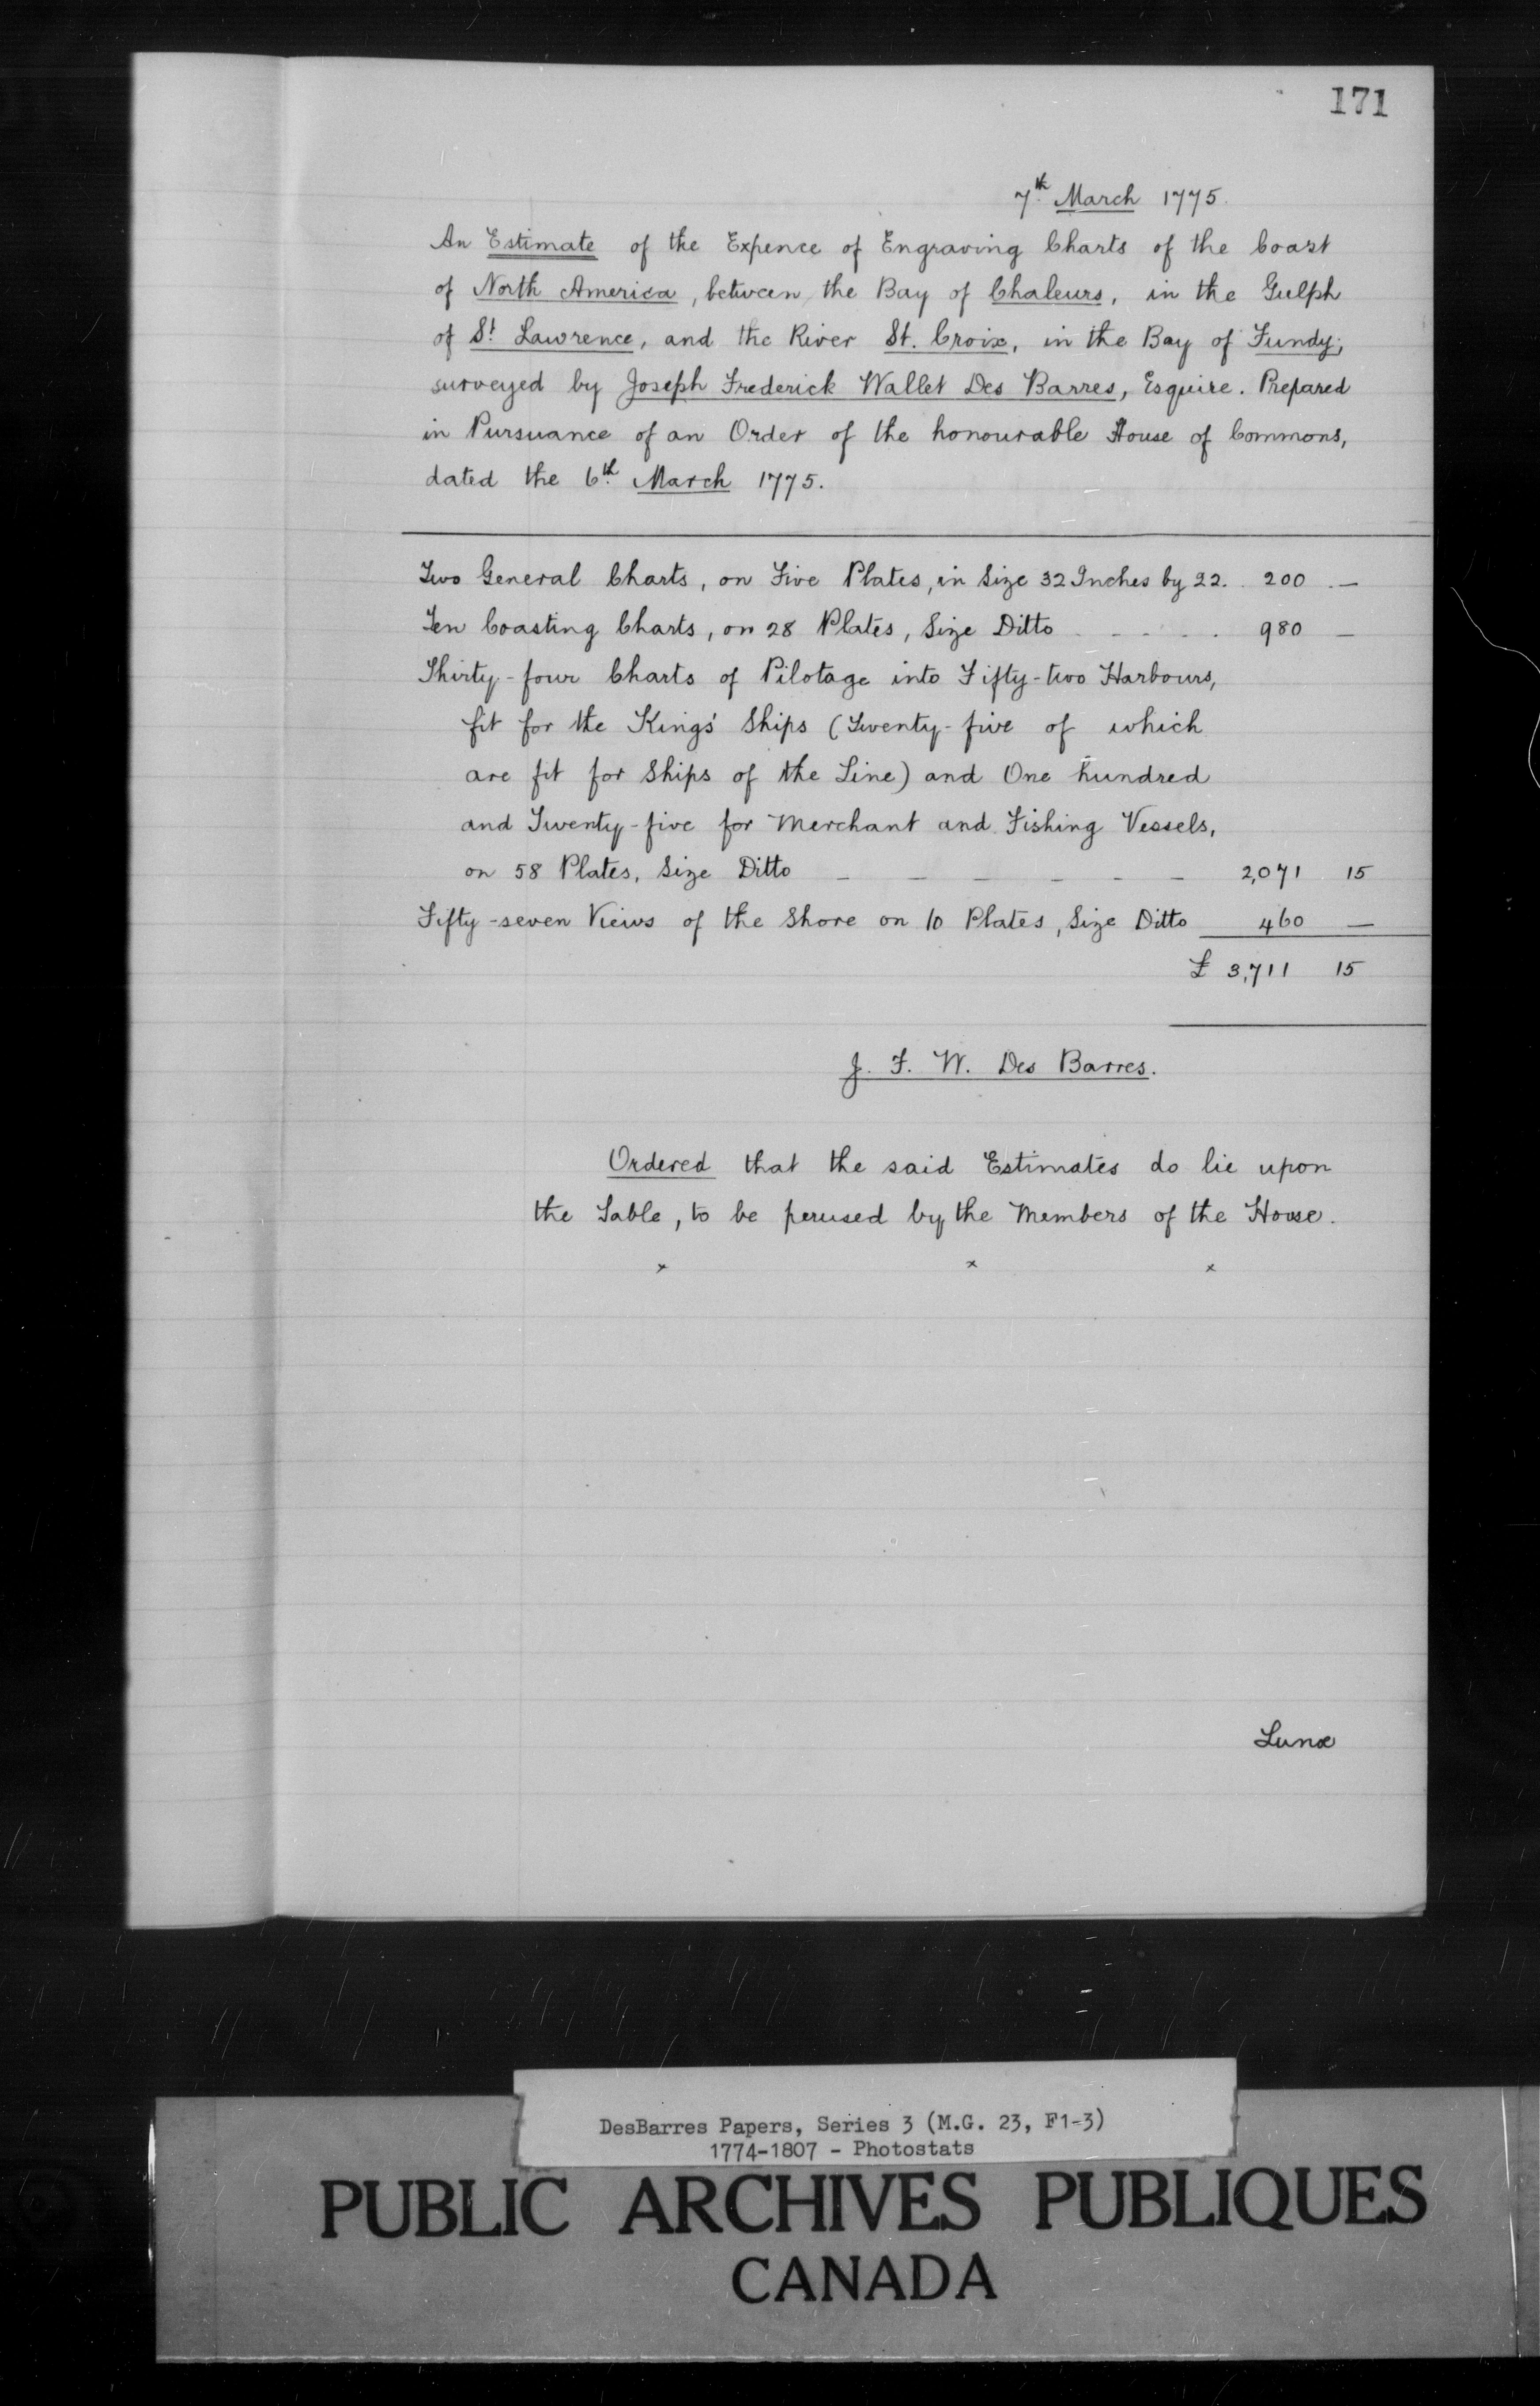 171
7th March 1775.
An Estimate of the Expence of Engraving Charts of the Coast
of North America, between the Bay of Chaleurs, in the Gulph
of St Lawrence, and the River St. Croix, in the Bay of Fundy;
surveyed by Joseph Frederick Wallet Des Barres, Esquire. Prepared
in Pursuance of an Order of the honourable House of Commons,
dated the 6th March 1775.
Two General Charts, on Five Plates, in Size 32 Inches by 22. . 200 . —
Ten Coasting Charts, on 28 Plates, Size Ditto - - - - . 980 —
Thirty-four Charts of Pilotage into Fifty-two Harbours,
fit for the Kings' Ships (Twenty-five of which
are fit for Ships of the Line) and One hundred
and Twenty-five for Merchant and Fishing Vessels,
on 58 Plates, Size Ditto — — — — — — 2,071 15
Fifty-seven Views of the Shore on 10 Plates, Size Ditto 460 —
£ 3,711 15
J. F. W. Des Barres.
Ordered that the said Estimates do lie upon
the Table, to be perused by the Members of the House.
x x x
Lunæ
DesBarres Papers, Series 3 (M.G. 23, F1-3)
1774-1807 - Photostats
PUBLIC ARCHIVES PUBLIQUES
CANADA